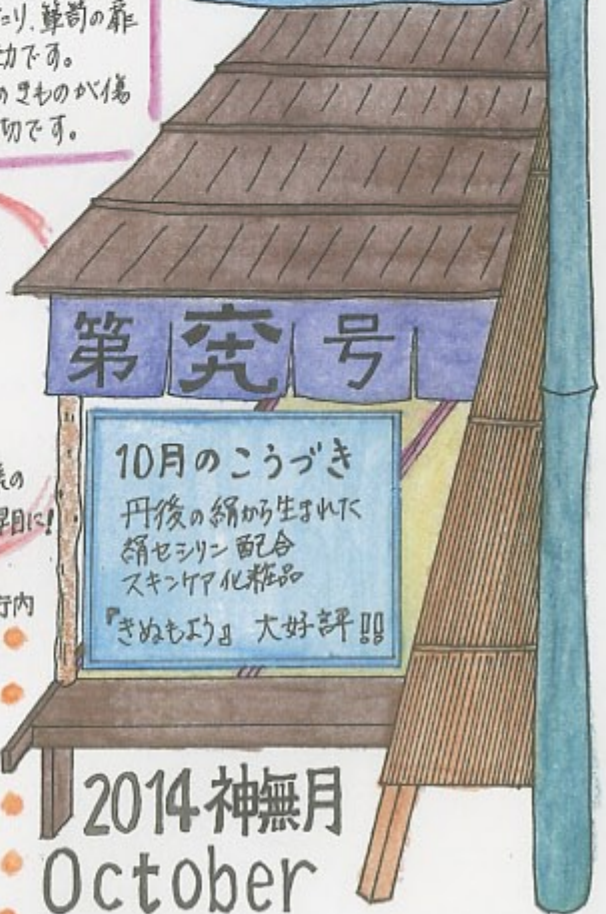 です。
のきものが傷
切です。
第 号
10月のこうづき
丹後の絹から生まれた
絹セシリン 配合
スキンケア化粧品
『きぬもよう』 大好評!!
の
早目に!
内
2014 神無月
October